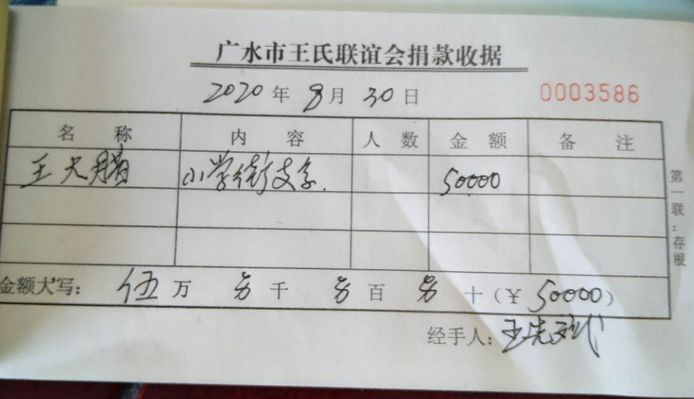 广水市王氏联谊会捐款收据
2020年8月30日 0003586
名称 内容 人数 金额 备注
王天腾 小学街支 50000
第一联:存根
金额大写: 伍万 另千 另百 另十(¥50000)
经手人: 王先斌